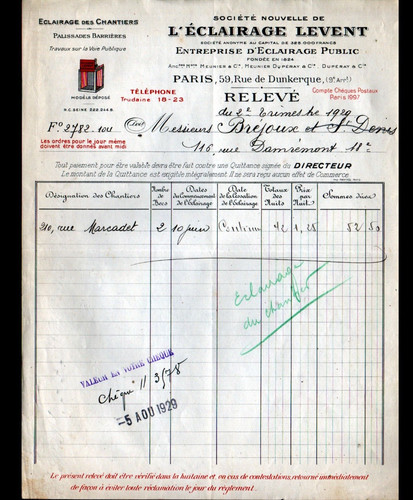 ECLAIRAGE DES CHANTIERS
PALISSADES BARRIÈRES
Travaux sur la Voie Publique
MODÈLE DÉPOSÉ
SOCIÉTÉ NOUVELLE DE
L'ÉCLAIRAGE LEVENT
SOCIÉTÉ ANONYME AU CAPITAL DE 325.000 FRANCS
ENTREPRISE D'ECLAIRAGE PUBLIC
FONDÉE EN 1824
PARIS, 59, Rue de Dunkerque, (9e Arrt)
TÉLÉPHONE
Trudaine 18-23
RELEVÉ
Compte Chèques Postaux
Paris 1097
du 2e Trimestre 1929
Fo 2782
Messieurs Brejoux et St Denis
Les ordres pour le jour même
doivent être donnés avant midi
116, rue Damrémont 18e
Tout paiement pour être valable devra être fait contre une Quittance signée du DIRECTEUR
Le montant de la Quittance est exigible intégralement. Il ne sera reçu aucun effet de Commerce.
Désignation des Chantiers
Nombre de Becs
Dates du Commencement de l'Éclairage
Dates de la Cessation de l'Éclairage
Totaux des Nuits
Prix par Nuit
Sommes dues
210, rue Marcadet 2 10 juin Continu 42 1,25 52 50
Eclairage
du chantier
VALEUR EN VOTRE CHEQUE
-5 AOU 1929
Le présent relevé doit être vérifié dans la huitaine et, en cas de contestations, retourné immédiatement
de façon à éviter toute réclamation le jour du règlement.